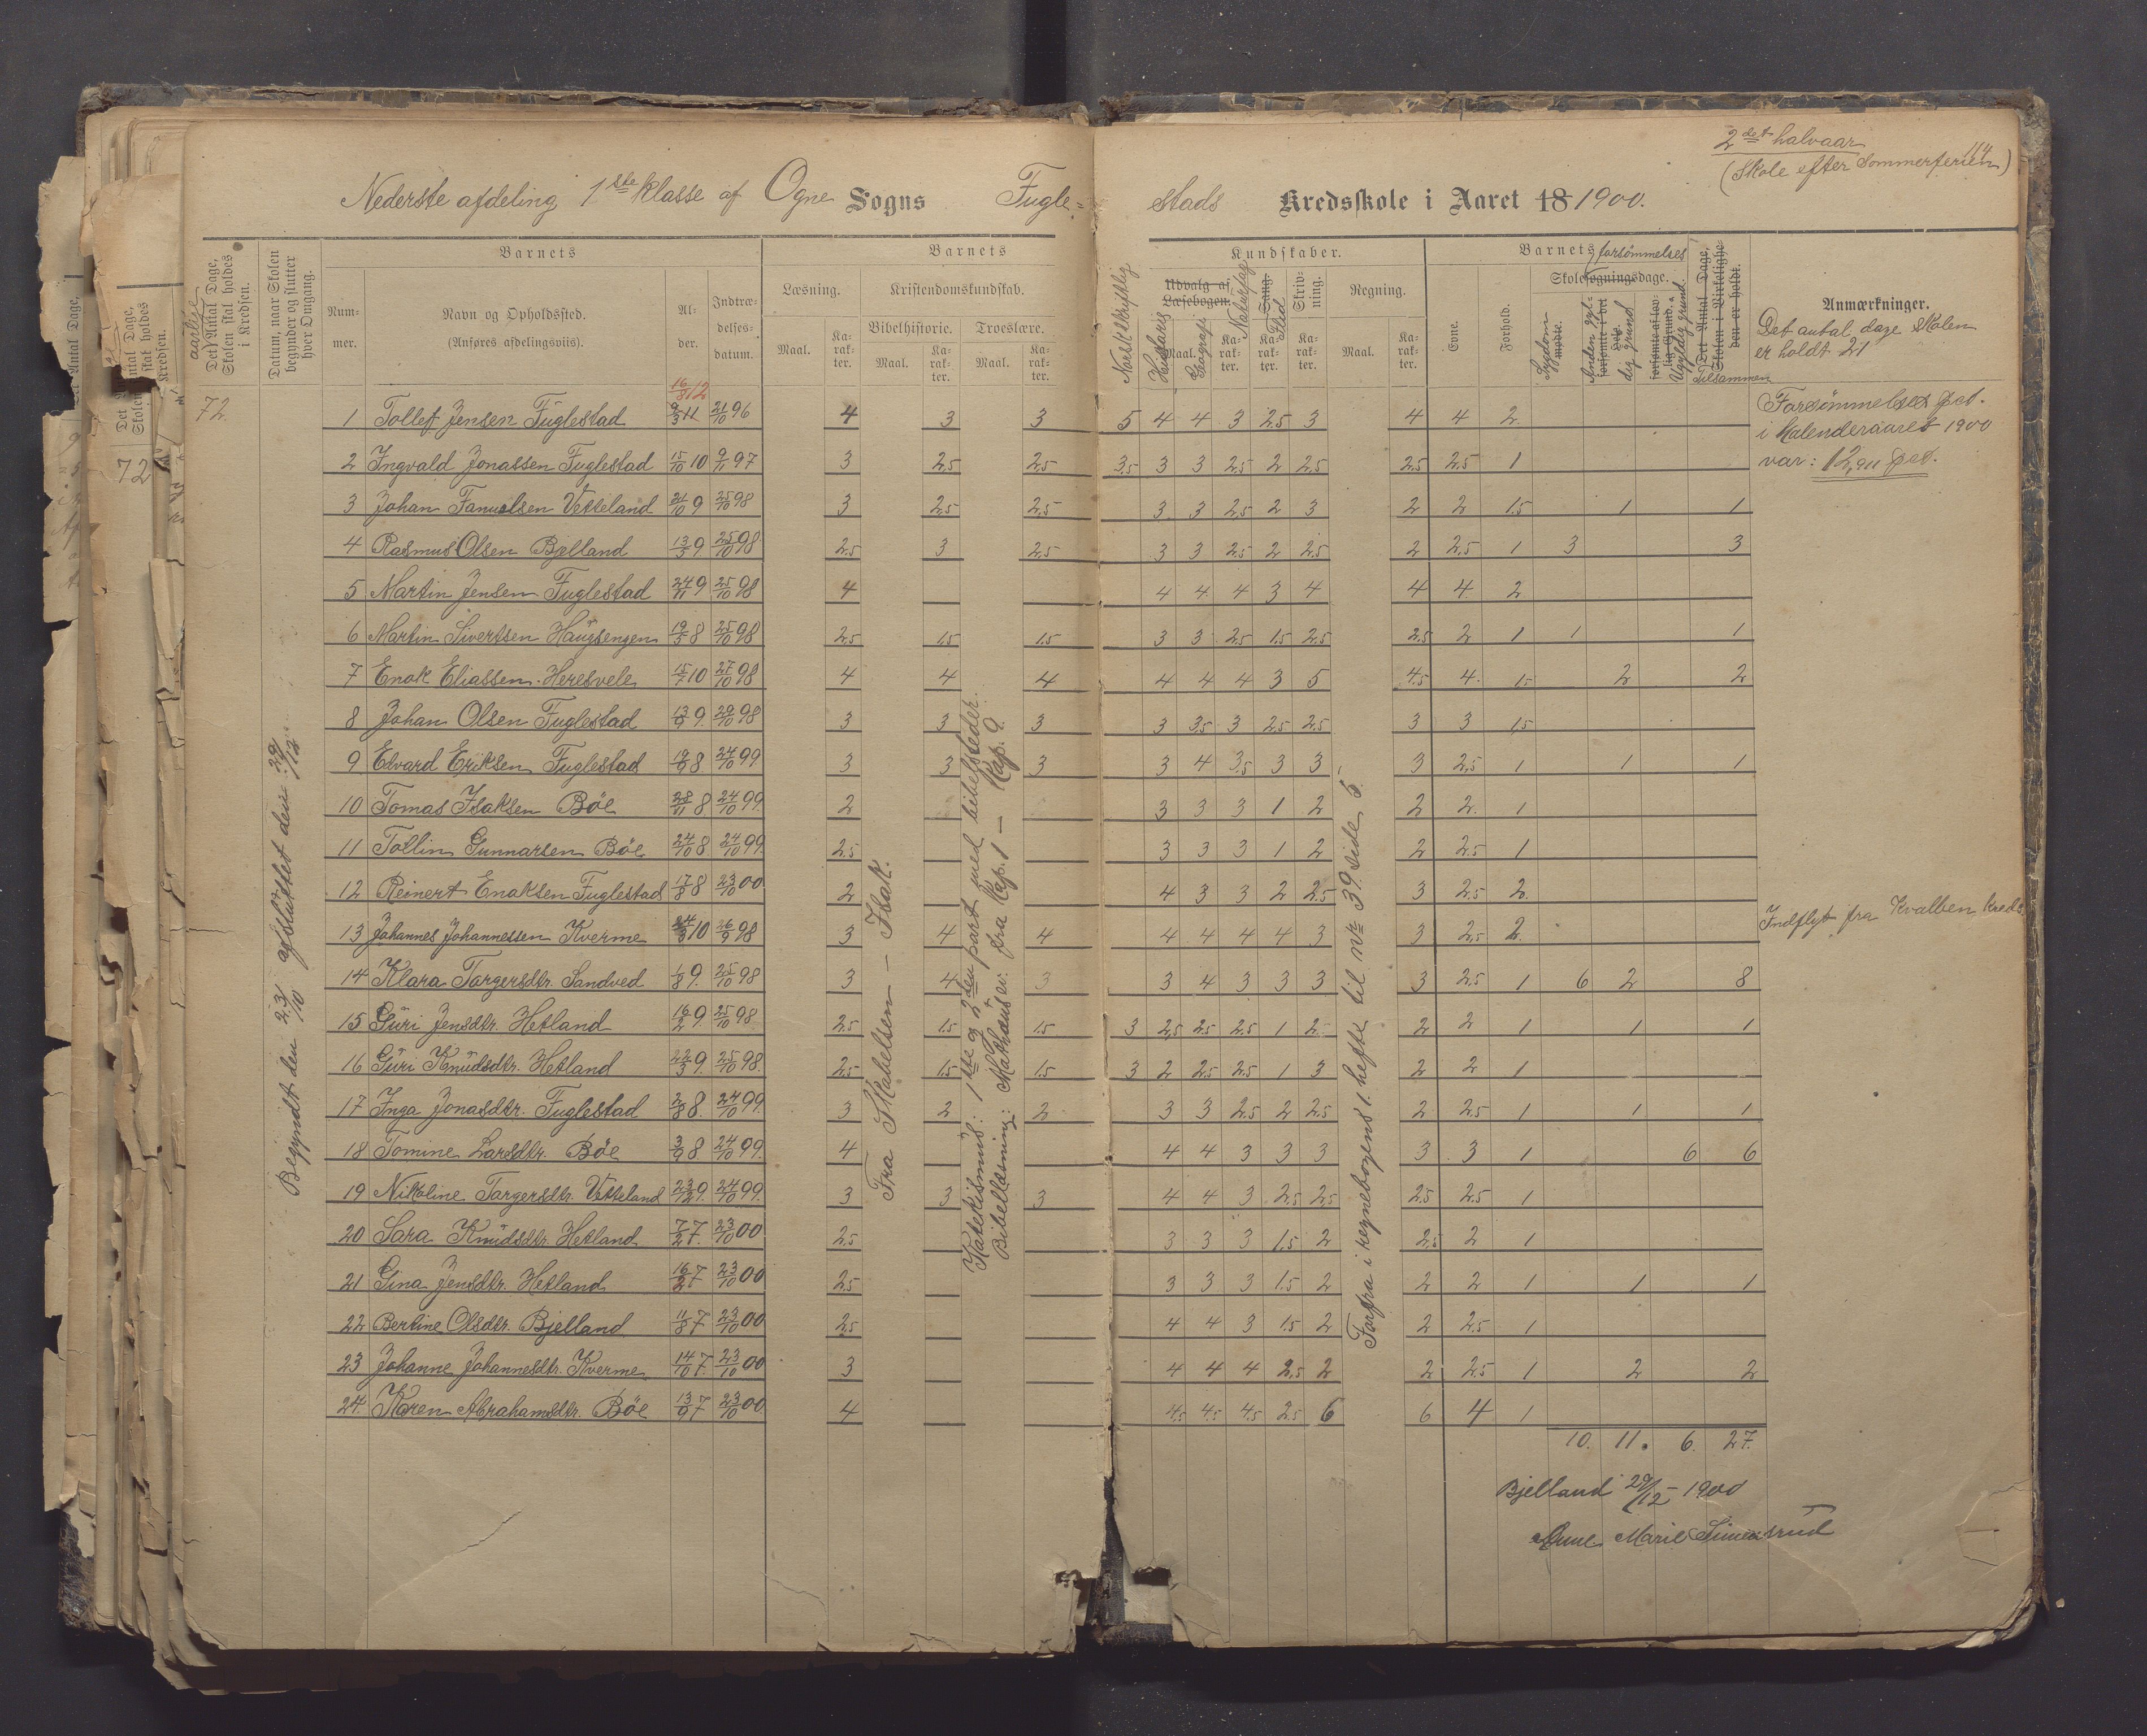 2det halvaar
(Skole efter Sommerferien)
114
Nederste afdeling 1ste klasse af Ogne Sogns Fugle-
stads Kredsskole i Aaret 18 1900.
aarlig
Det Antal Dage, Skolen skal holdes i Kredsen.
Datum, naar Skolen begynder og slutter hver Omgang.
Barnets
Num-mer.
Navn og Opholdssted.
(Anføres afdelingsviis).
Al-der.
Indtræ-delses-datum.
Barnets
Læsning.
Kristendomskundskab.
Bibelhistorie.
Troeslære.
Maal. Ka-rak-ter. Maal. Ka-rak-ter. Maal. Ka-rak-ter.
Kundskaber.
Norsk skriftlig
Udvalg af Læsebogen.
Historie
Maal.
Geografi
Naturfag
Ka-rak-ter.
Sang.
Flid
Ka-rak-ter.
Skriv-ning.
Ka-rak-ter.
Regning.
Maal. Ka-rak-ter.
Barnets forsømmelser
Evne.
Forhold.
Skolesøgningsdage.
Sygdom
mødte.
Anden gyl-
dig grund
Ugyldig grund
Det Antal Dage, Skolen i Virkelighe-den er holdt.
Tilsammen
Anmærkninger.
Det antal dage skolen
er holdt 21
16/8 12
72 1 Tollef Jensen Fuglestad 9/3 11 21/10 96 4 3 3 5 4 4 3 2.5 3 4 4 2
Forsømmelses pct.
i Kalenderaaret 1900
var: 12,911 pct.
2 Ingvald Jonassen Fuglestad 15/10 10 9/11 97 3 2.5 2.5 3.5 3 3 2.5 2 2.5 2.5 2.5 1
3 Johan Tanuelsen Vetteland 21/10 9 25/10 98 3 2.5 2.5 3 3 2.5 2 3 2 2 1.5 1 1
4 Rasmus Olsen Bjelland 13/5 9 25/10 98 2.5 3 2.5 3 3 2.5 2 2.5 2 2.5 1 3 3
5 Martin Jensen Fuglestad 24/11 9 25/10 98 4 4 4 4 3 4 4 4 2
6 Martin Sivertsen Haugsengen 19/5 8 25/10 98 2.5 1.5 1.5 3 3 2.5 1.5 2.5 2.5 2 1 1 1
7 Enok Eliassen Heresvele 15/7 10 27/10 98 4 4 4 4 4 4 3 5 4.5 4 1.5 2 2
8 Johan Olsen Fuglestad 13/9 9 29/10 98 3 3 3 3 3.5 3 2.5 2.5 3 3 1.5
9 Edvard Eriksen Fuglestad 19/9 8 24/10 99 3 3 3 3 4 3.5 3 3 3 2.5 1 1 1
10 Tomas Isaksen Bøe 28/11 8 24/10 99 2 3 3 3 1 2 2 2 1
11 Tollin Gunnarsen Bøe 24/10 8 24/10 99 2.5 3 3 3 1 2 2 2.5 1
12 Reinert Enoksen Fuglestad 17/8 8 23/10 00 2 4 3 3 2 2.5 3 2.5 2
13 Johannes Johannessen Kverme 24/3 10 26/9 98 3 4 4 4 4 4 4 3 3 2.5 2 Indflyt fra Kvalben kreds
14 Klara Torgersdtr. Sandved 1/8 9 25/10 98 3 4 3 3 4 3 3 3 3 2.5 1 6 2 8
15 Guri Jensdtr. Hetland 16/2 9 25/10 98 2.5 1.5 1.5 3 2.5 2.5 2.5 1 2 2 2 1 1 1
16 Guri Knudsdtr. Hetland 22/3 9 25/10 98 2.5 1.5 1.5 3 2 2.5 2.5 1 3 2 2 1
17 Inga Jonasdtr. Fuglestad 2/8 8 24/10 99 3 2 2 3 3 2.5 2 2.5 2 2.5 1 1 1
18 Tomine Larsdtr. Bøe 3/9 8 24/10 99 4 4 4 3 3 3 3 3 1 6 6
19 Nikoline Torgersdtr. Vetteland 23/12 9 24/10 99 3 3 3 4 4 3 2.5 2.5 2.5 2.5 1
20 Sara Knudsdtr. Hetland 7/2 7 23/10 00 2.5 3 3 3 1.5 2 2.5 2 1
21 Gina Jensdtr. Hetland 16/2 7 23/10 00 2.5 3 3 3 1.5 2 2 2 1 1 1
22 Bertine Olsdtr. Bjelland 11/8 7 23/10 00 2.5 4 4 3 1.5 2 2 2.5 1
23 Johanne Johannesdtr. Kverme 14/10 7 23/10 00 3 4 4 4 2.5 2 2 2.5 1 2 2
24 Karen Abrahamsdtr. Bøe 13/9 7 23/10 00 4 4.5 4.5 4.5 2.5 6 6 4 1
10. 11. 6. 27.
Begyndt den 23/10 afsluttet den 29/12
Fra Skabelsen – Isak.
Katekismus: 1ste og 2den part med bibelsteder.
Bibellæsning: Mathæus ev: fra Kap. 1 – Kap. 9.
Forfra i regnebogens 1. hefte til Nr 39, side 5.
Bjelland 29/12 1900
Anne Marie Simensrud